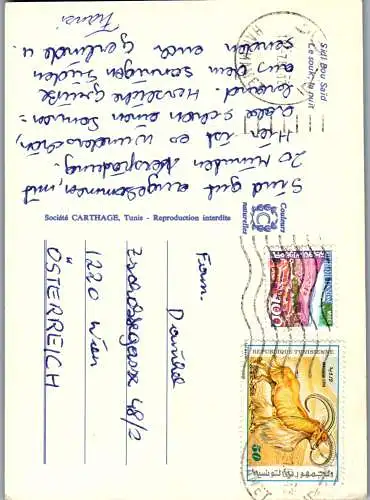 Sidi Bou Said
Le souk la nuit
Sind gut angekommen, mit
20 Minuten Verspätung.
Hier ist es wunderschön,
habe schon einen Sonnen=
brand. Herzliche Grüße
aus dem sonnigen Süden
senden euch Gerlinde u.
Franzi
Société CARTHAGE, Tunis - Reproduction interdite
Couleurs
naturelles
C
Fam.
1220 Wien
ÖSTERREICH
REPUBLIQUE TUNISIENNE
50
الجمهورية التونسية
100
HAMMAMET